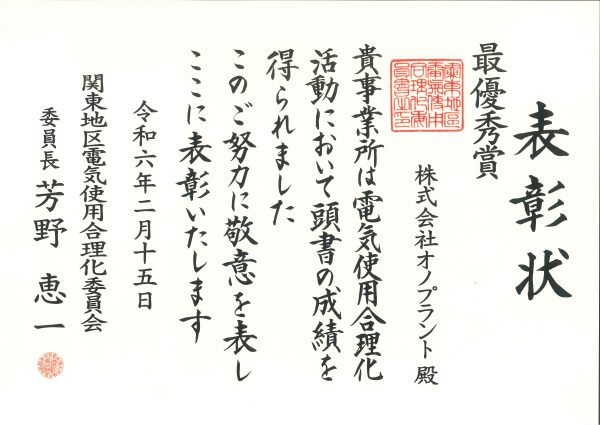 表彰状
最優秀賞
株式会社オノプラント 殿
貴事業所は電気使用合理化
活動において頭書の成績を
得られました
このご努力に敬意を表し
ここに表彰いたします
令和六年二月十五日
関東地区電気使用合理化委員会
委員長 芳野 恵一